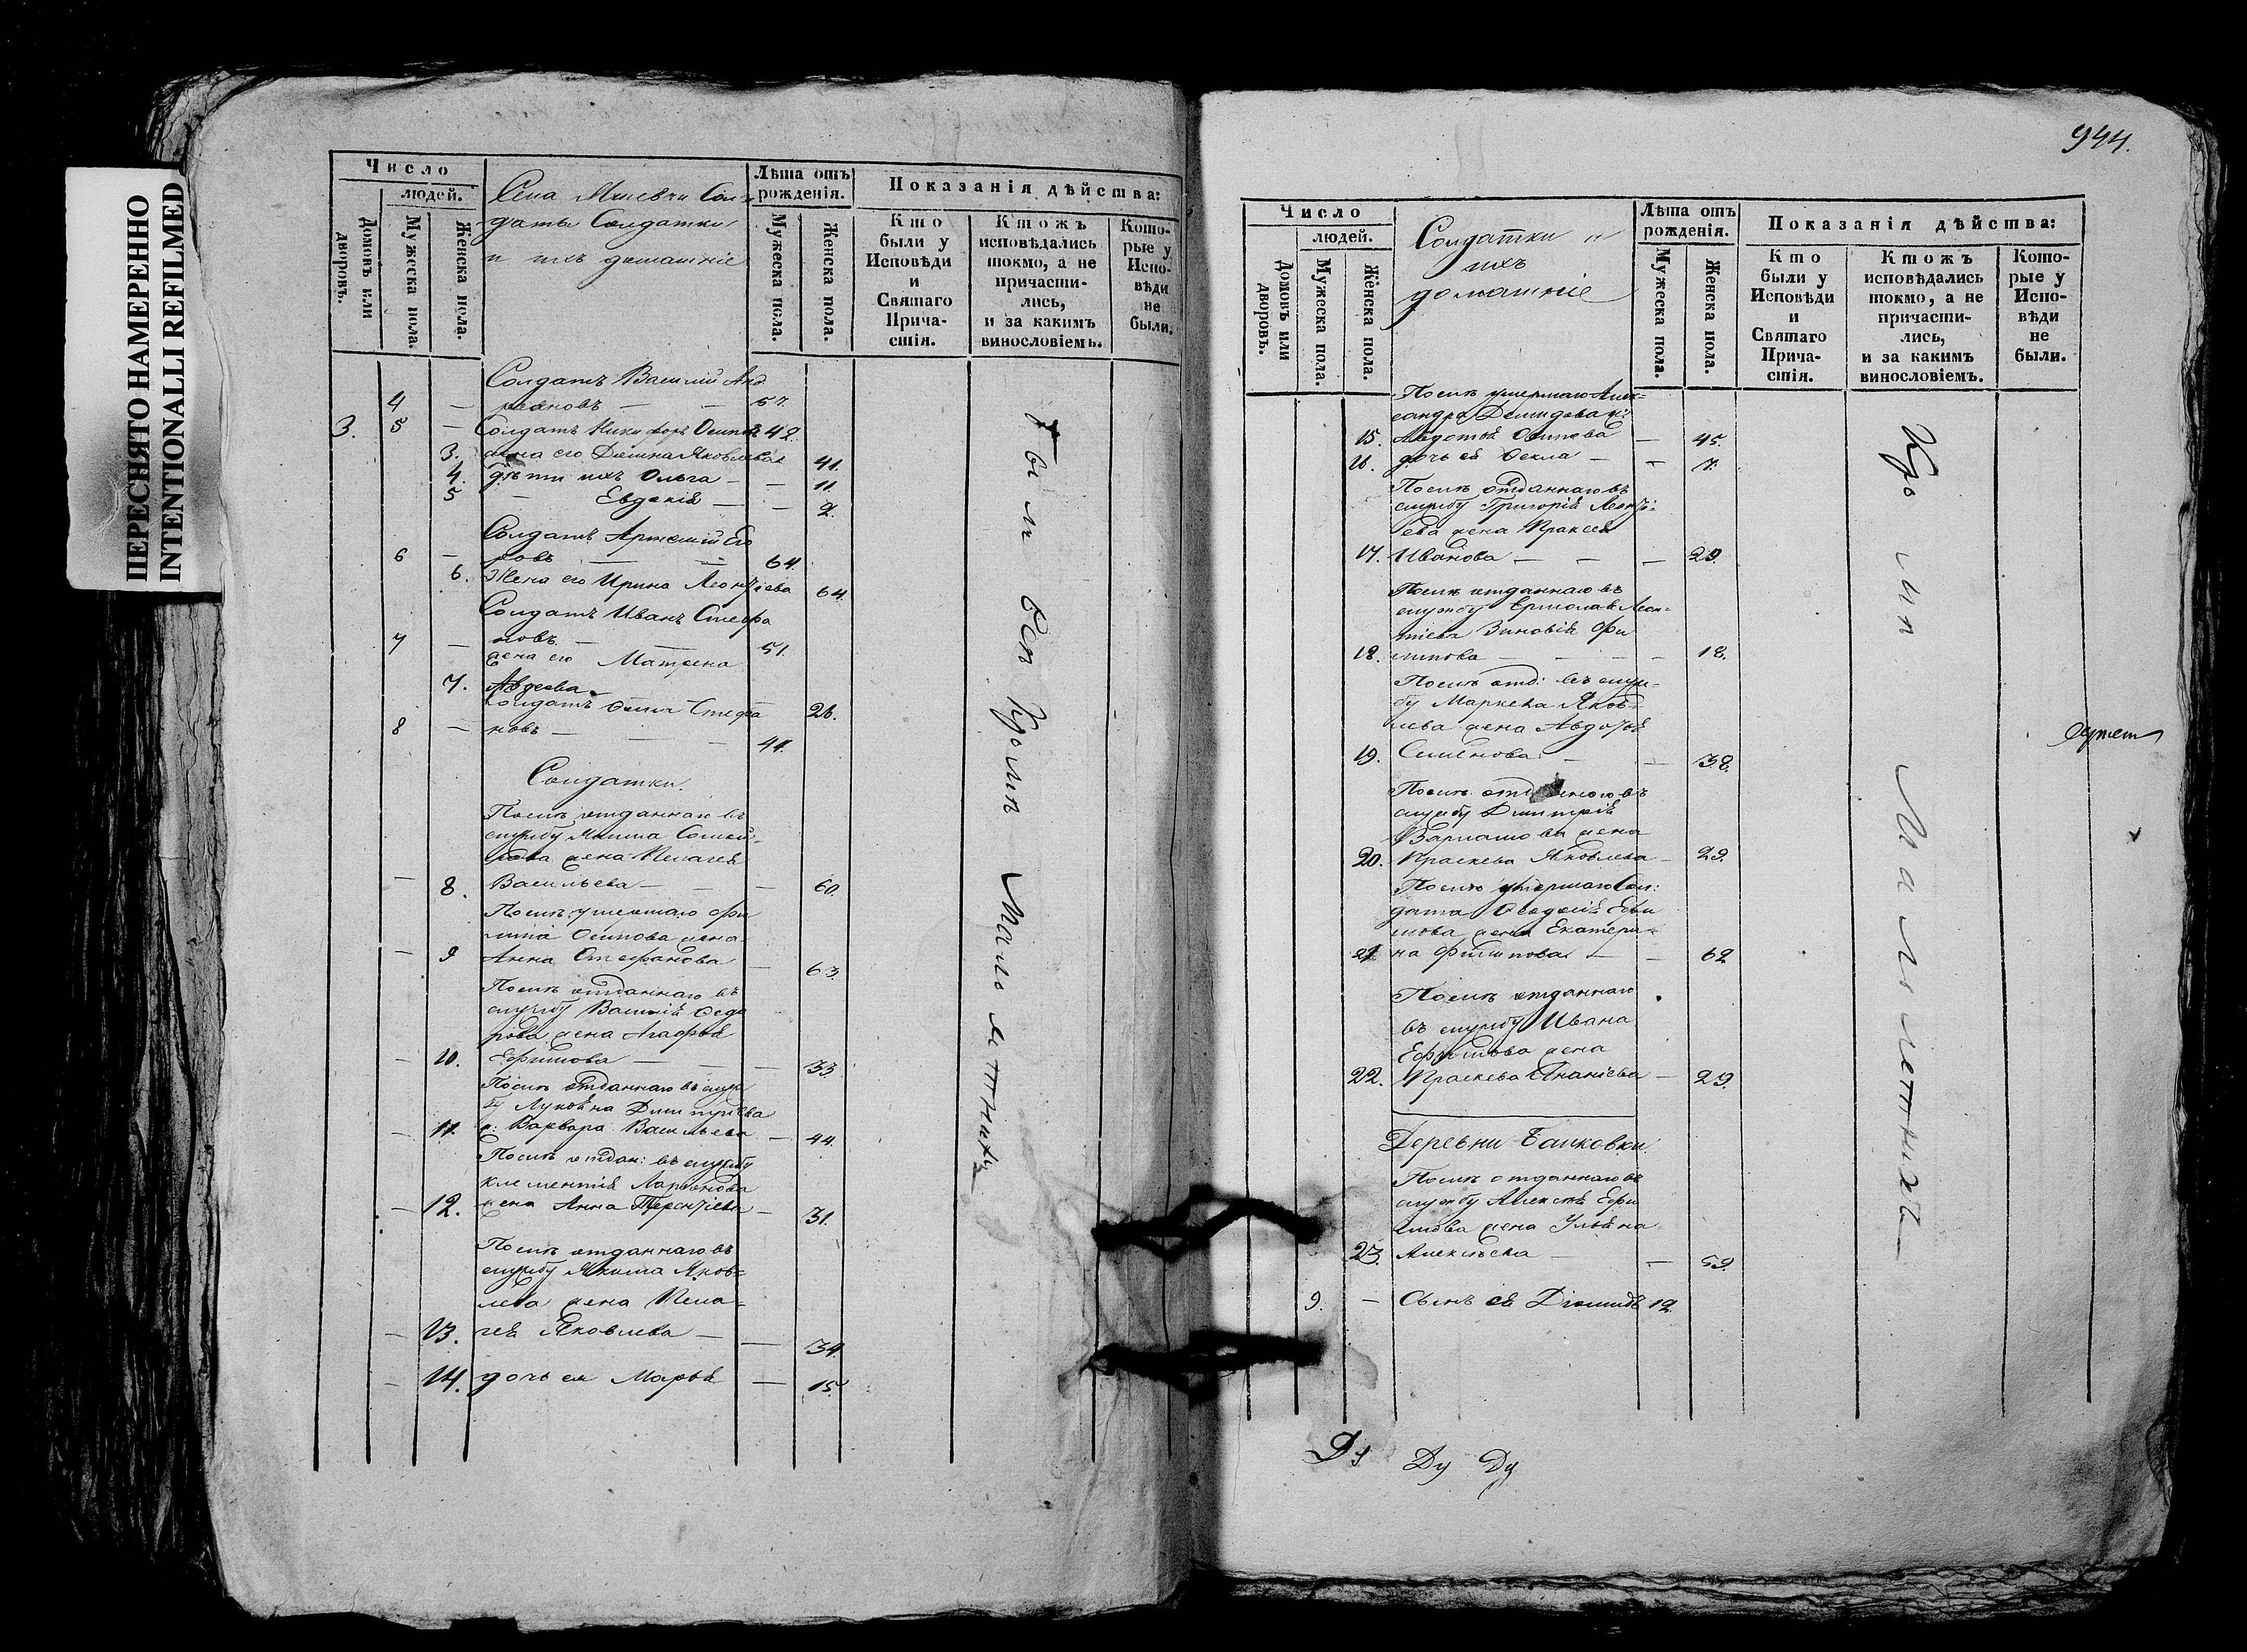 ПЕРЕСНЯТО НАМЕРЕННО
INTENTIONALLI REFILMED
Число
людей.
Домовъ или дворовъ.
Мужеска пола.
Женска пола.
Села Сол-
даты Солдатки
и ихъ домашніе
Лѣта отъ рожденія.
Мужеска пола.
Женска пола.
Показанія дѣйства:
Кто были у Исповѣди и Святаго Причастія.
Ктожъ исповѣдались токмо, а не причастились, и за какимъ винословіемъ.
Которые у Исповѣди не были.
Солдатъ Василій Анд
4 — реяновъ — — 57.
3. 5 — Солдатъ Никифоръ Осиповъ 42.
3. жена его Домна Яковлева 41.
4. дѣти ихъ Ольга — — 11.
5 — Евдокія — — 2.
Солдатъ Артемій Его
6 — ровъ — — 64.
6. Жена его Ирина Леонтіева 64.
Солдатъ Иванъ Стефа
7 — новъ — — 51.
жена его Матрена
7. Авдеева 26.
Солдатъ Осипъ Стефа
8 — новъ — — — 41.
Солдатки.
Послѣ отданнаго въ
службу Якима Самой-
лова жена Пелагея
— 8. Васильева — — — 60.
Послѣ умершаго Фи
липа Осипова жена
— 9 Анна Стефанова — 63.
Послѣ отданнаго въ
службу Василія Федо
рова жена Агафья
— 10. Ефимова — — — 33.
Послѣ отданнаго въ служ
бу Лукьяна Димитріева
— 11. ж: Варвара Васильева — 44.
Послѣ отдан: въ службу
Клементія Ларіонова
— 12. жена Анна Терентіева — 31.
Послѣ отданнаго въ
службу Якима Яков-
лева жена Пела-
— 13. гея Яковлева — — 34.
— 14. дочь ея Марья — 15.
Были всѣ кромѣ Малолѣтнихъ
944.
Число
людей.
Домовъ или дворовъ.
Мужеска пола.
Женска пола.
Солдатки и
ихъ
домашніе
Лѣта отъ рожденія.
Мужеска пола.
Женска пола.
Показанія дѣйства:
Кто были у Исповѣди и Святаго Причастія.
Ктожъ исповѣдались токмо, а не причастились, и за какимъ винословіемъ.
Которые у Исповѣди не были.
Послѣ умершаго Алек-
сандра Демидова ж:
15. Федотья Осипова — 45.
16. дочь ея Фекла — — 7.
Послѣ отданнаго въ
службу Григорія Леонті-
ева жена Праксея
17. Иванова — — — 29.
Послѣ отданнаго въ
службу Ермолая Леон-
тіева Зиновія Фи
18. липова — — — 18.
Послѣ отд: въ служ-
бу Маркела Яков-
лева жена Авдотья
19. Семенова — — 38.
Послѣ отданнаго въ
службу Димитрія
жена
20. Праскева Яковлева — 29.
Послѣ умершаго Сол:
дата Федосія Ефи
мова жена Екатери-
21. на Филипова — — 62
Послѣ отданнаго
въ службу Ивана
Ефимова жена
22. Праскева Ананіева — 29.
Деревни
Послѣ отданнаго въ
службу Алексѣя Ефи
мова жена Ульяна
23. Алексѣева — — 59.
9. — Сынъ ея Діомидъ 12.
Малолѣтнихъ
Ду Ду Ду